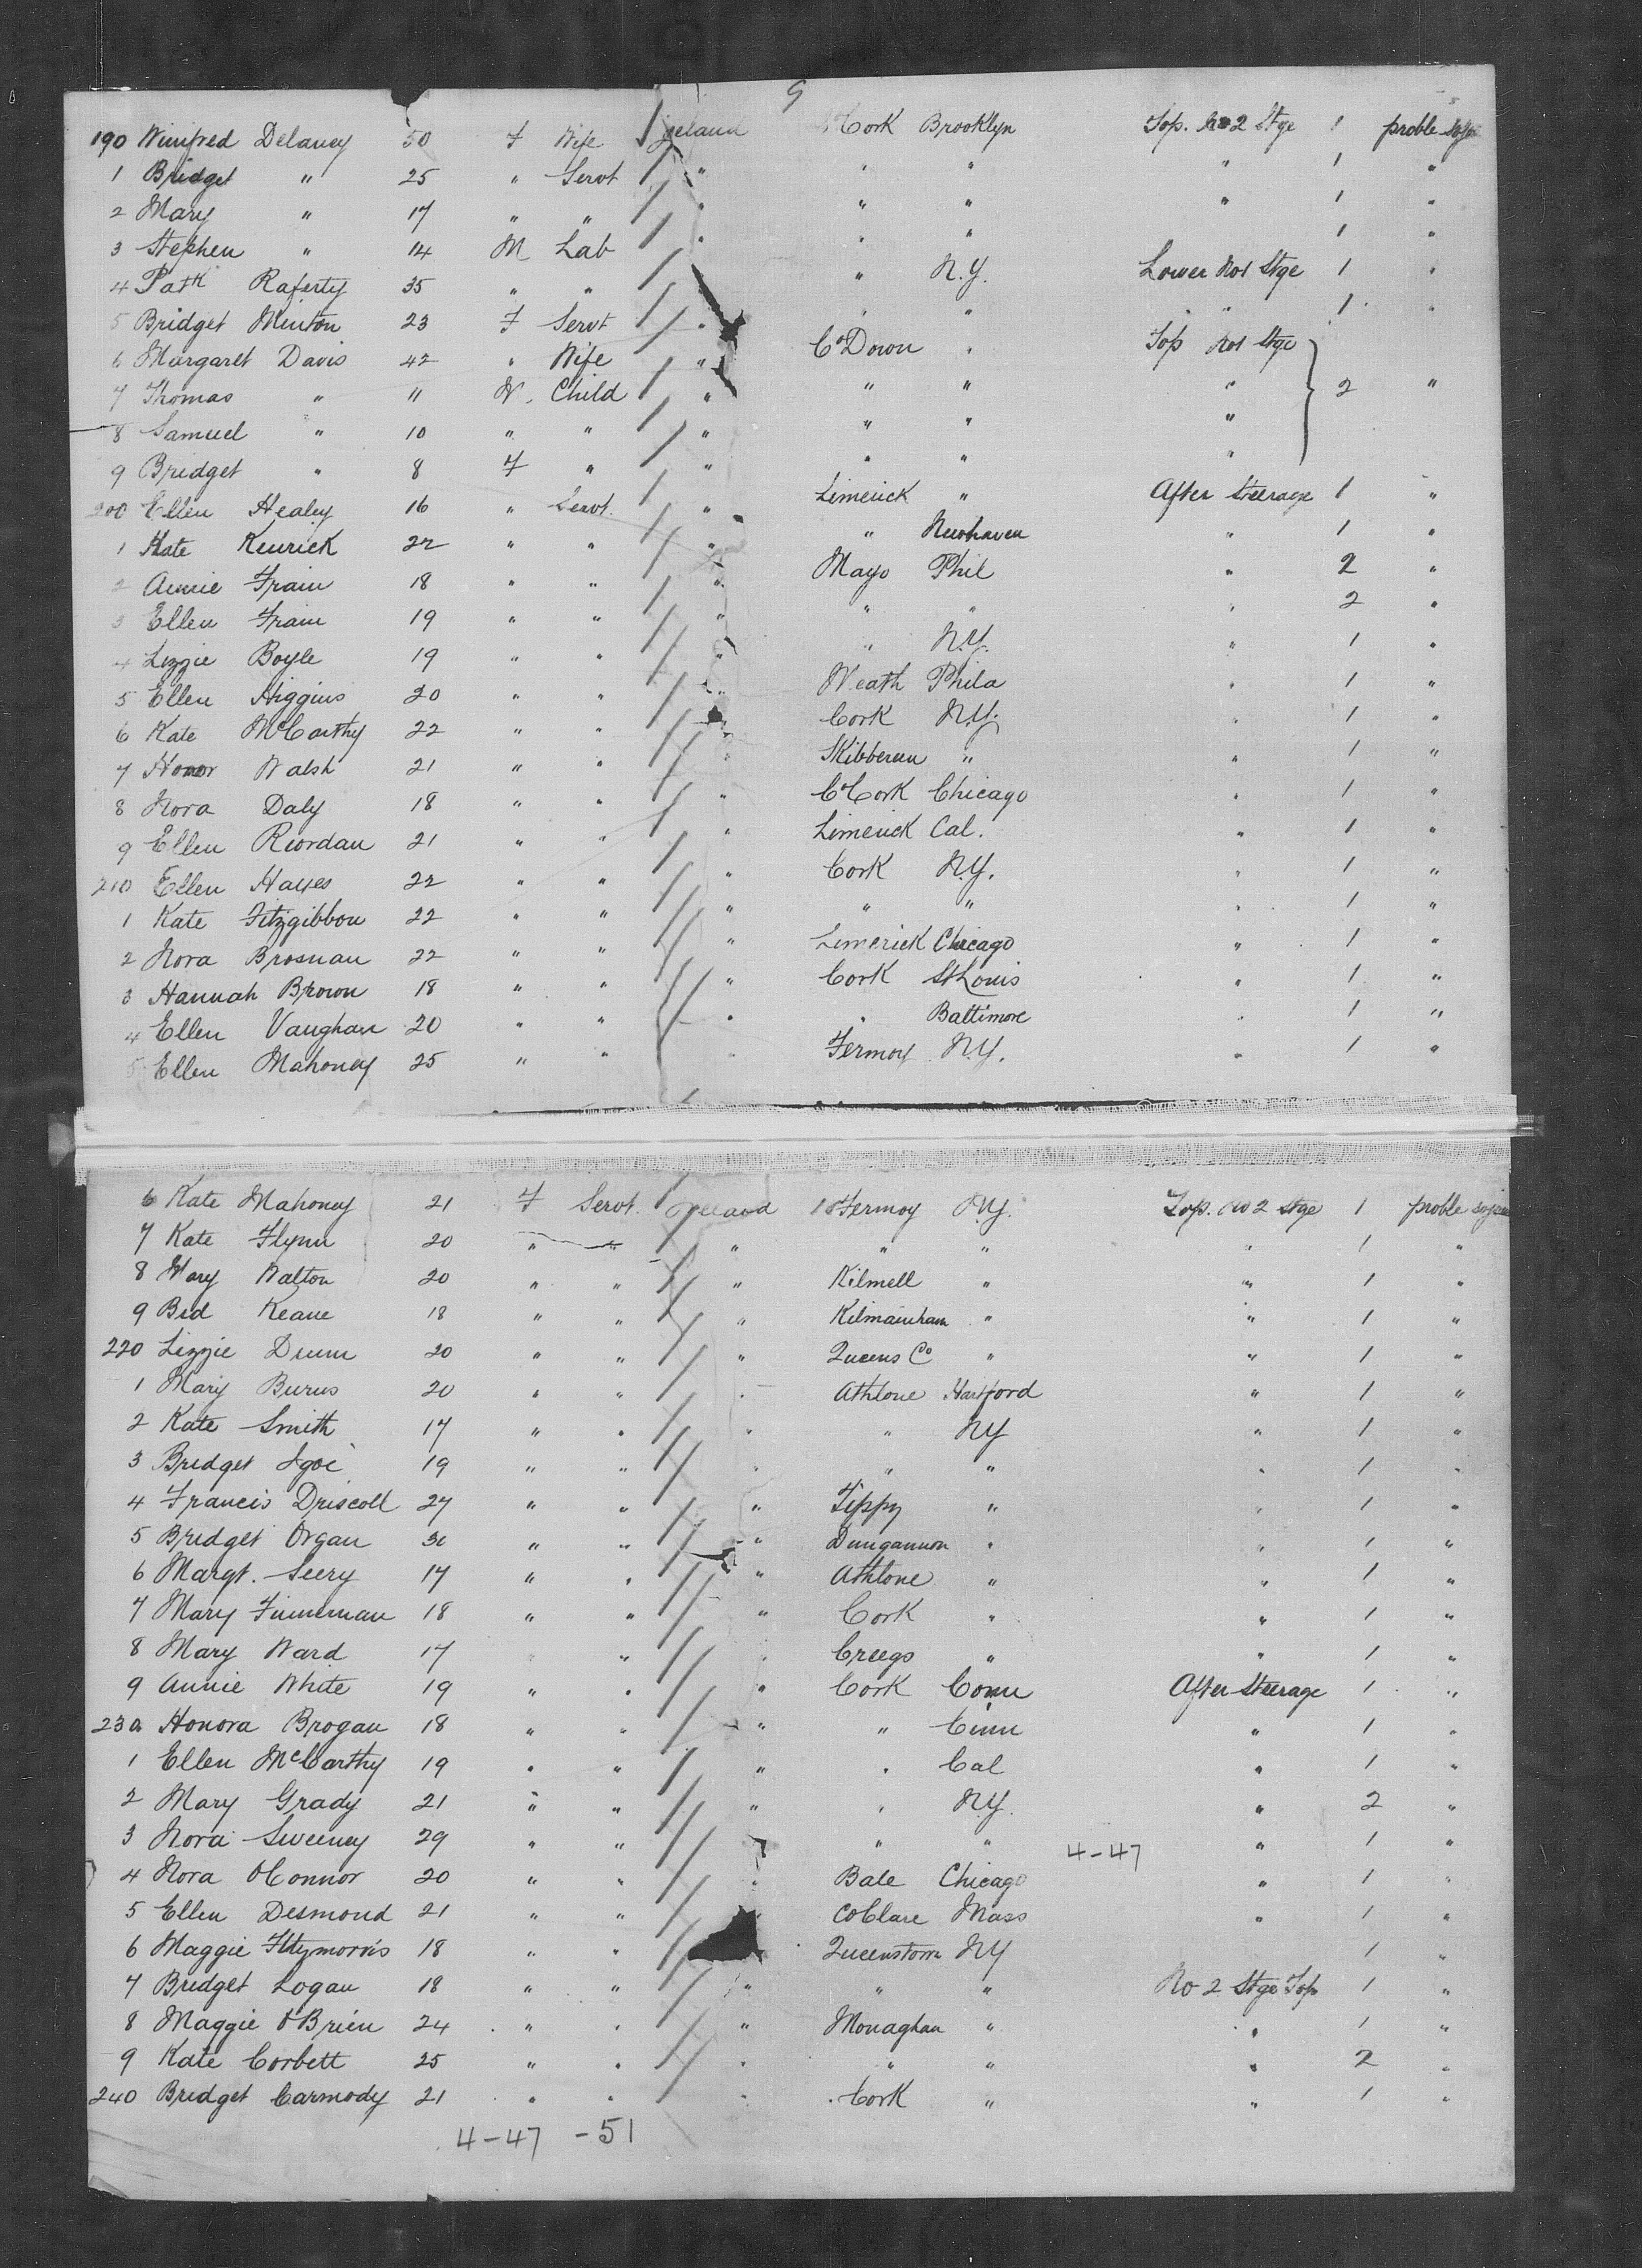 9
190 Winifred Delaney 50 F Wife Ireland Cork Brooklyn Top. No 2 Stge 1 proble sojn
1 Bridget " 25 " Servt " " " " 1 "
2 Mary " 17 " " " " " " 1 "
3 Stephen " 14 M Lab " " " 1 "
4 Patk Raferty 35 " " " N.Y. Lower No1 Stge 1 "
5 Bridget Minton 23 F Servt " " " " " 1 "
6 Margaret Davis 42 " Wife " Co Down " Top No1 Stge
7 Thomas " 11 M. Child " " " " 2 "
8 Samuel " 10 " " " " " "
9 Bridget " 8 F " " " " "
200 Ellen Healey 16 " Servt. " Limerick " After Steerage 1 "
1 Kate Kenrick 22 " " " " Newhaven " 1 "
2 Annie Frain 18 " " " Mayo Phil " 2 "
3 Ellen Frain 19 " " " " " " 2 "
4 Lizzie Boyle 19 " " " " N.Y. " 1 "
5 Ellen Higgins 20 " " " Meath Phila " 1 "
6 Kate McCarthy 22 " " " Cork N.Y. " 1 "
7 Honor Walsh 21 " " " Skibbereen " " 1 "
8 Nora Daly 18 " " " Co Cork Chicago " 1 "
9 Ellen Riordan 21 " " " Limerick Cal. " 1 "
210 Ellen Hayes 22 " " " Cork N.Y. " 1 "
1 Kate Fitzgibbon 22 " " " " " " 1 "
2 Nora Brosnan 22 " " " Limerick Chicago " 1 "
3 Hannah Brown 18 " " " Cork St Louis " 1 "
4 Ellen Vaughan 20 " " " " Baltimore " 1 "
5 Ellen Mahoney 25 " " " Fermoy N.Y. " 1 "
6 Kate Mahoney 21 F Servt. Ireland Fermoy N.Y. Top. No 2 Stge 1 proble sojn
7 Kate Flynn 20 " " " " " " 1 "
8 Mary Walton 20 " " " Kilmell " " 1 "
9 Bid Keane 18 " " " Kilmainham " " 1 "
220 Lizzie Drum 20 " " " Queens Co " " 1 "
1 Mary Burns 20 " " " Athlone Hartford " 1 "
2 Kate Smith 17 " " " " NY " 1 "
3 Bridget Igoe 19 " " " " " " 1 "
4 Francis Driscoll 27 " " " Tippy " " 1 "
5 Bridget Organ 30 " " " Dungannon " " 1 "
6 Margt. Seery 17 " " " Athlone " " 1 "
7 Mary Finneman 18 " " " Cork " " 1 "
8 Mary Ward 17 " " " Creegs " " 1 "
9 Annie White 19 " " " Cork Conn After Steerage 1 "
230 Honora Brogan 18 " " " " Cinn " 1 "
1 Ellen McCarthy 19 " " " " Cal " 1 "
2 Mary Grady 21 " " " " N.Y. " 2 "
3 Nora Sweeney 29 " " " " " 4-47 " 1 "
4 Nora OConnor 20 " " " Bale Chicago " 1 "
5 Ellen Desmond 21 " " " Co Clare Mass " 1 "
6 Maggie Fitzmorris 18 " " Queenstown NY 1 "
7 Bridget Logan 18 " " " " " No 2 Stge Top 1 "
8 Maggie O'Brien 24 " " " Monaghan " " 1 "
9 Kate Corbett 25 " " " " " " 2 "
240 Bridget Carmody 21 " " " Cork " " 1 "
4-47 -51